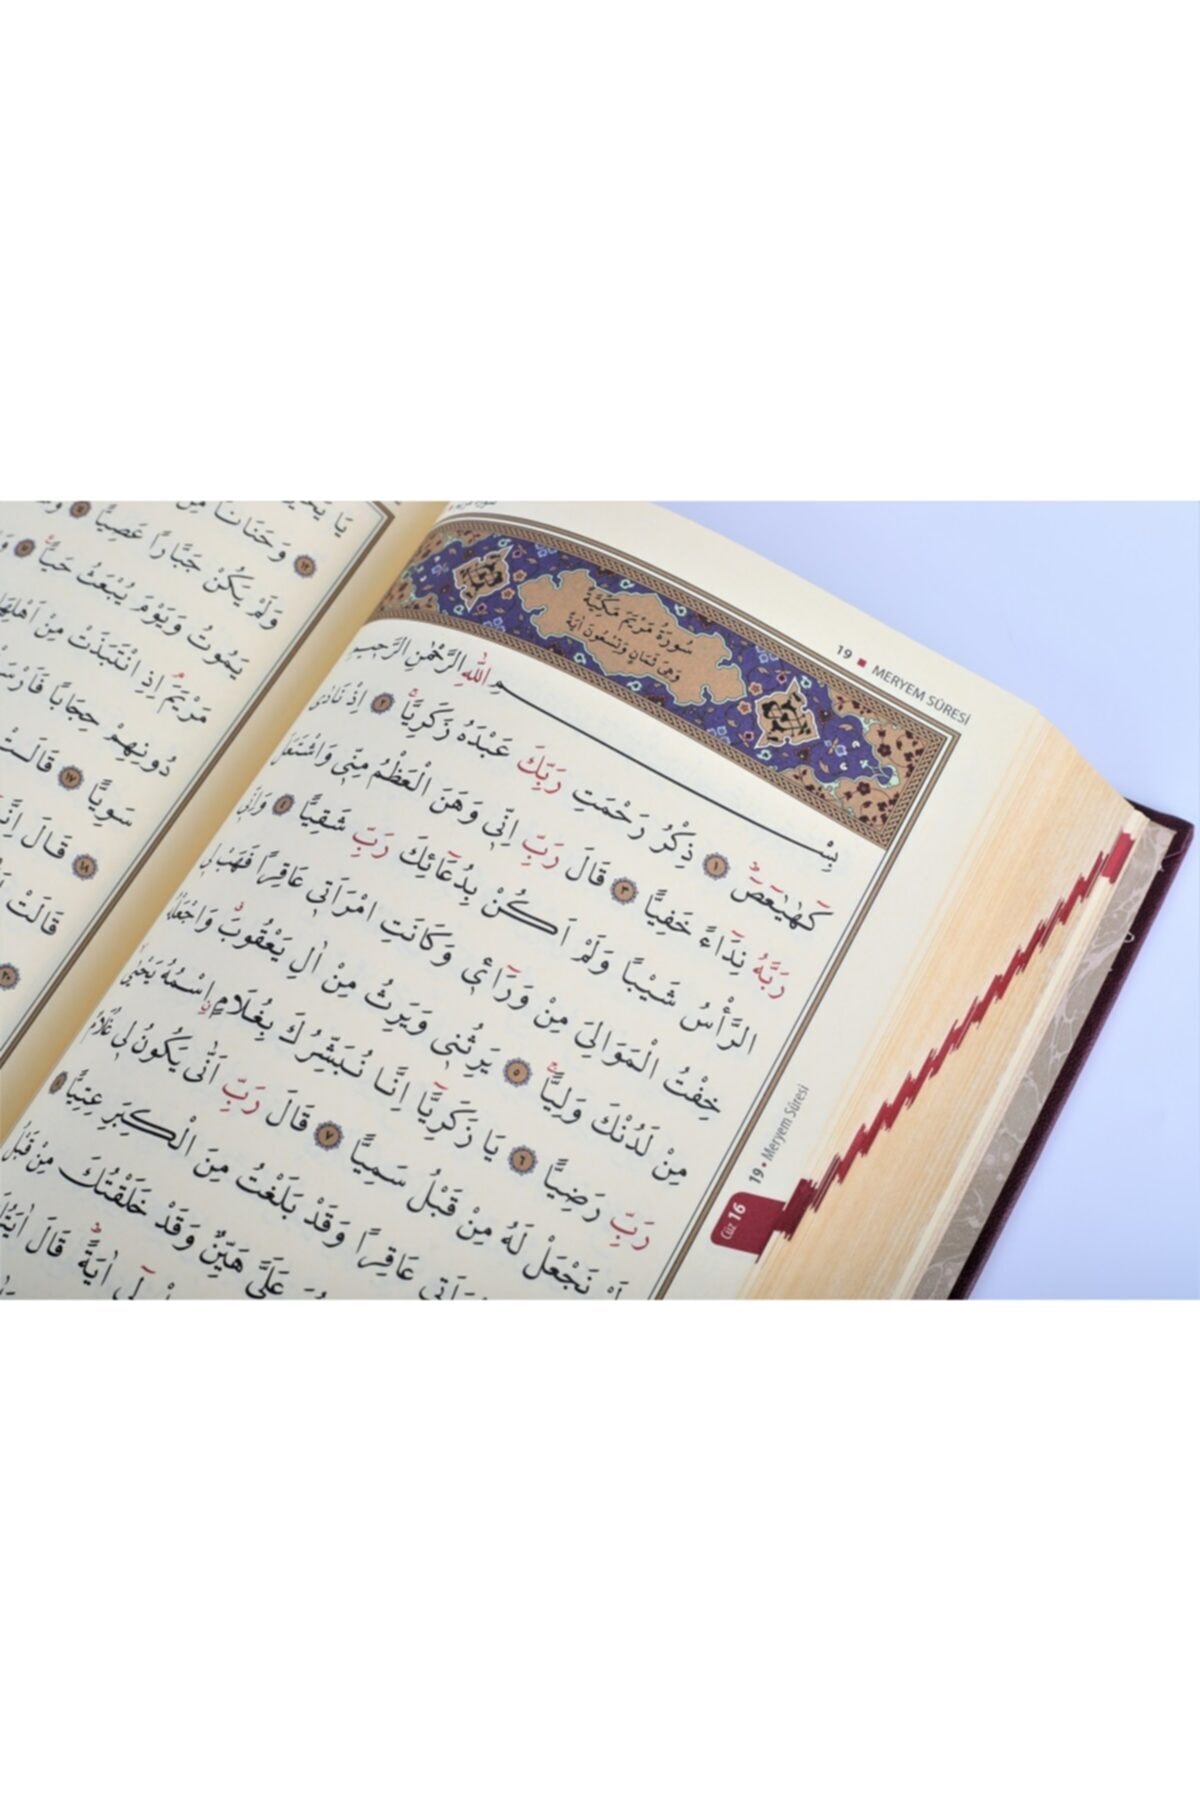 19 ▪ MERYEM SÛRESİ
سُورَةُ مَرْيَمَ مَكِّيَّةٌ
وَهِيَ ثَمَانٍ وَتِسْعُونَ اٰيَةً
بِسْمِ اللّٰهِ الرَّحْمٰنِ الرَّحٖيمِ
كٓهٰيٰعٓصٓ ۝١ ذِكْرُ رَحْمَتِ رَبِّكَ عَبْدَهُ زَكَرِيَّا ۝٢ اِذْ نَادٰى
رَبَّهُ نِدَٓاءً خَفِيًّا ۝٣ قَالَ رَبِّ اِنّٖى وَهَنَ الْعَظْمُ مِنّٖى وَاشْتَعَلَ
الرَّأْسُ شَيْبًا وَلَمْ اَكُنْ بِدُعَٓائِكَ رَبِّ شَقِيًّا ۝٤ وَاِنّٖى
خِفْتُ الْمَوَالِىَ مِنْ وَرَٓائٖى وَكَانَتِ امْرَاَتٖى عَاقِرًا فَهَبْ لٖى
مِنْ لَدُنْكَ وَلِيًّا ۝٥ يَرِثُنٖى وَيَرِثُ مِنْ اٰلِ يَعْقُوبَ وَاجْعَلْهُ
رَبِّ رَضِيًّا ۝٦ يَا زَكَرِيَّٓا اِنَّا نُبَشِّرُكَ بِغُلَامٍ اسْمُهُ يَحْيٰى
لَمْ نَجْعَلْ لَهُ مِنْ قَبْلُ سَمِيًّا ۝٧ قَالَ رَبِّ اَنّٰى يَكُونُ لٖى غُلَامٌ
عَاقِرًا وَقَدْ بَلَغْتُ مِنَ الْكِبَرِ عِتِيًّا ۝٨
عَلَىَّ هَيِّنٌ وَقَدْ خَلَقْتُكَ مِنْ قَبْلُ
لٖٓى اٰيَةً قَالَ اٰيَتُكَ
19 • Meryem Sûresi
Cüz 16
وَحَنَانًا مِنْ
وَلَمْ يَكُنْ جَبَّارًا عَصِيًّا ۝١٤
يَمُوتُ وَيَوْمَ يُبْعَثُ حَيًّا
مَرْيَمَ اِذِ انْتَبَذَتْ مِنْ اَهْلِهَا
دُونِهِمْ حِجَابًا
سَوِيًّا ۝١٧ قَالَتْ
قَالَ اِنَّمَا
قَالَتْ